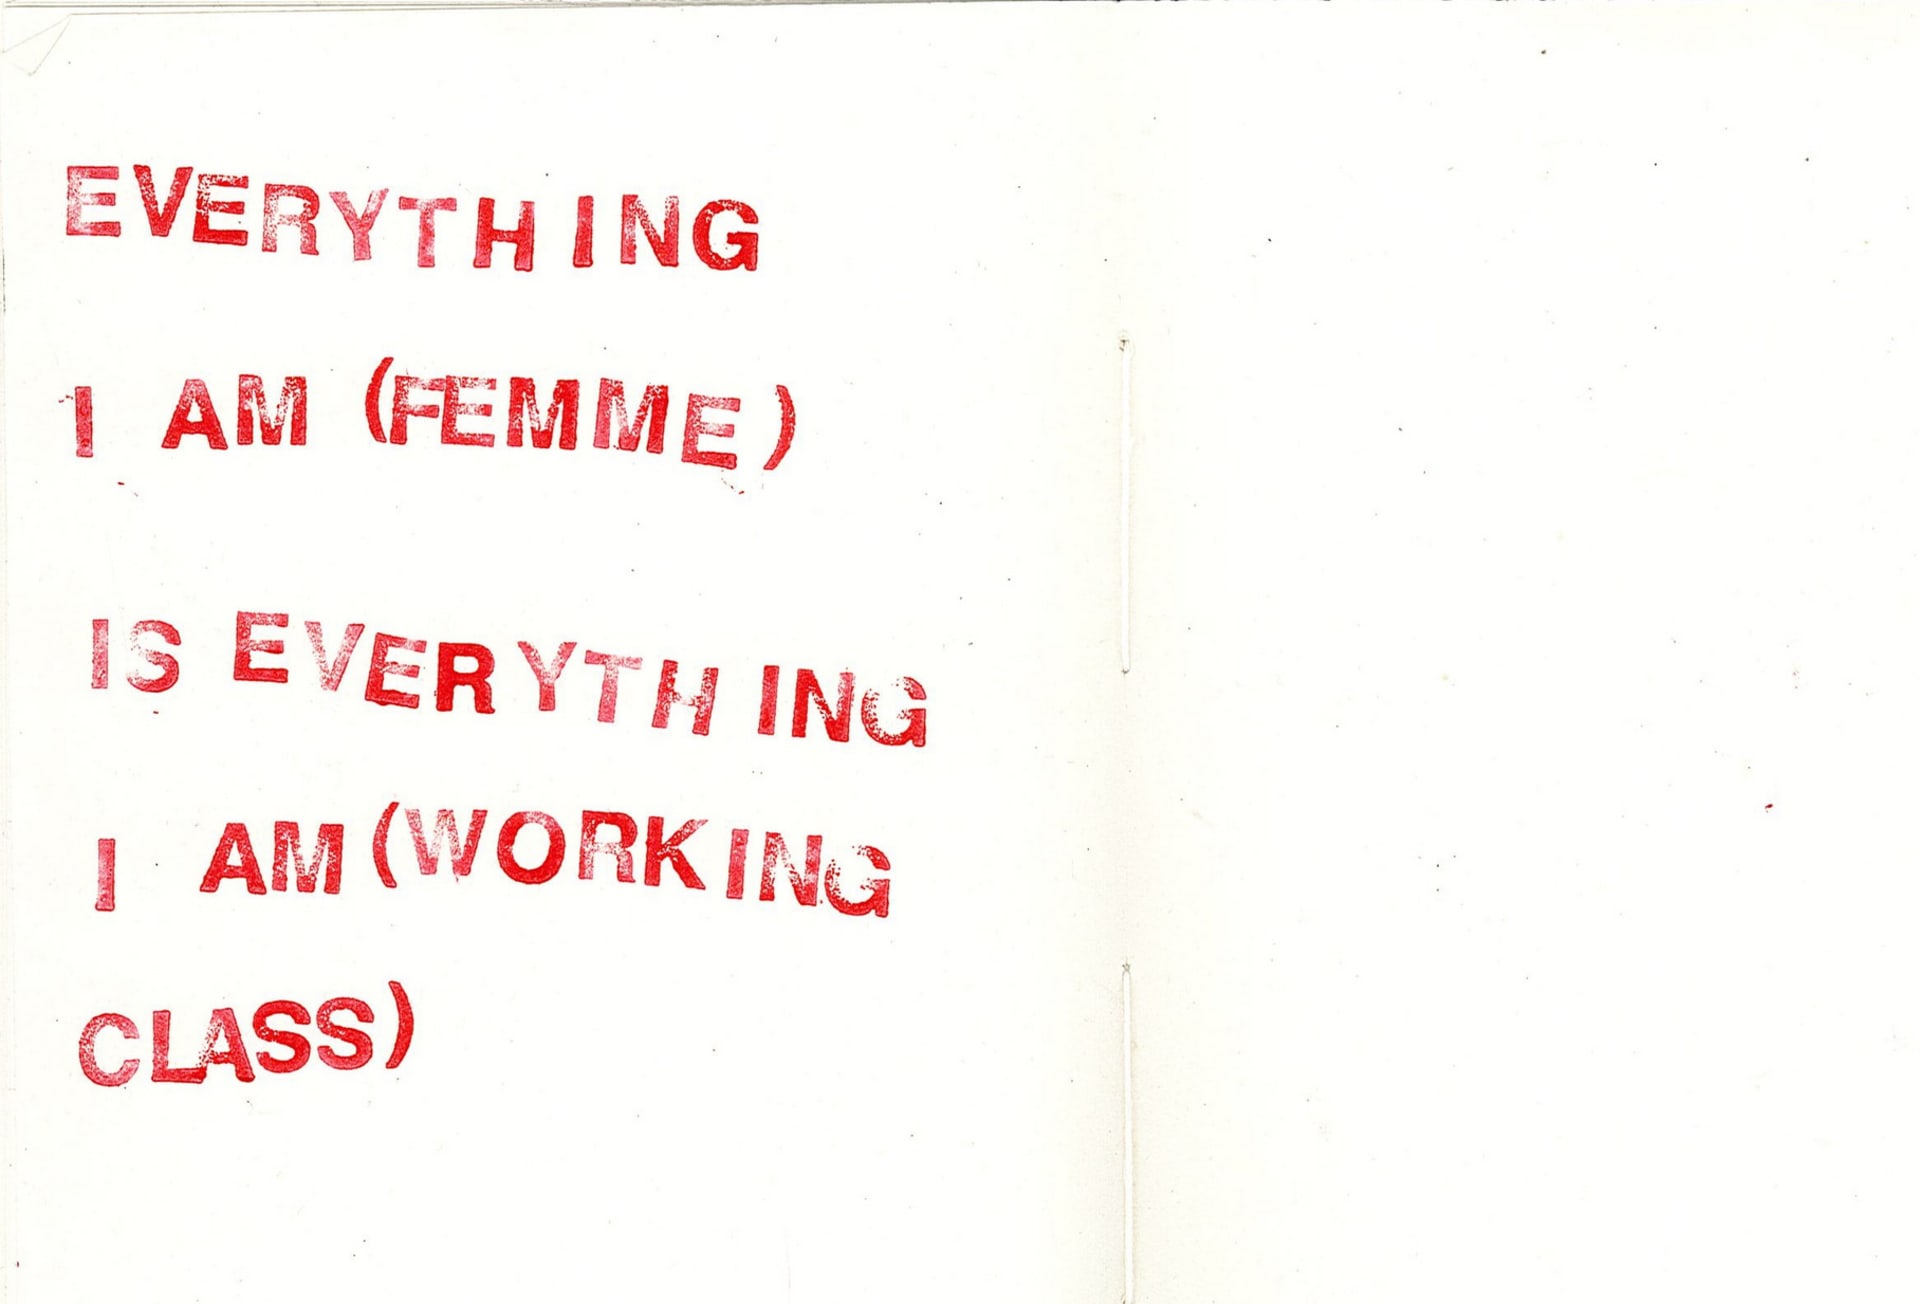 EVERYTHING
I AM (FEMME)
IS EVERYTHING
I AM (WORKING
CLASS)